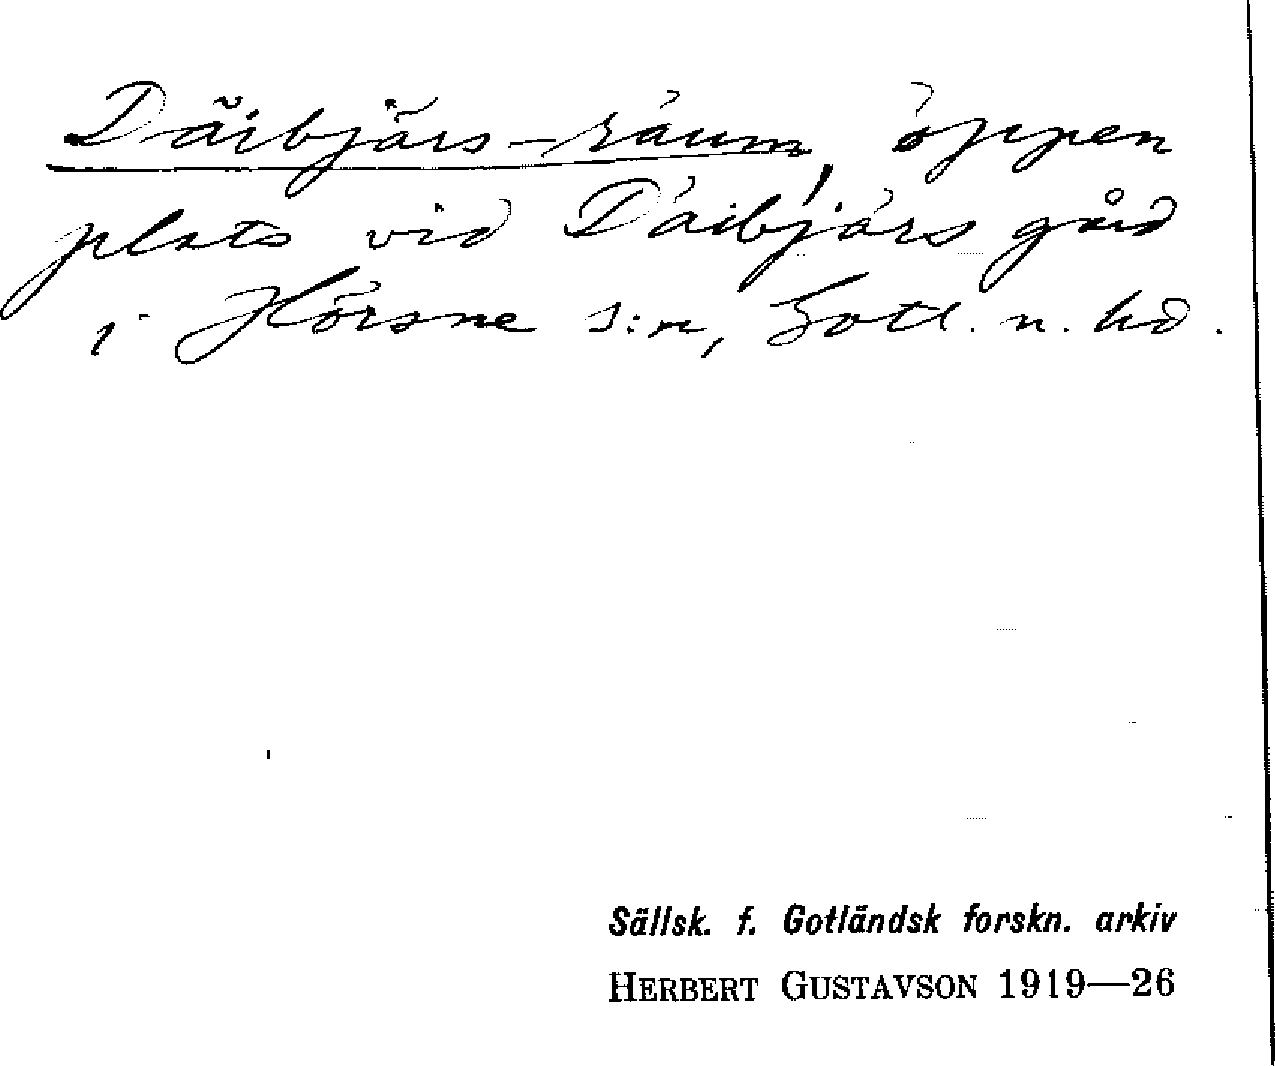 Däibjärs-räum, öppen
plats vid Däibjärs gård
i Hörsne s:n, Gotl. n. hd.
Sällsk. f. Gotländsk forskn. arkiv
HERBERT GUSTAVSON 1919—26